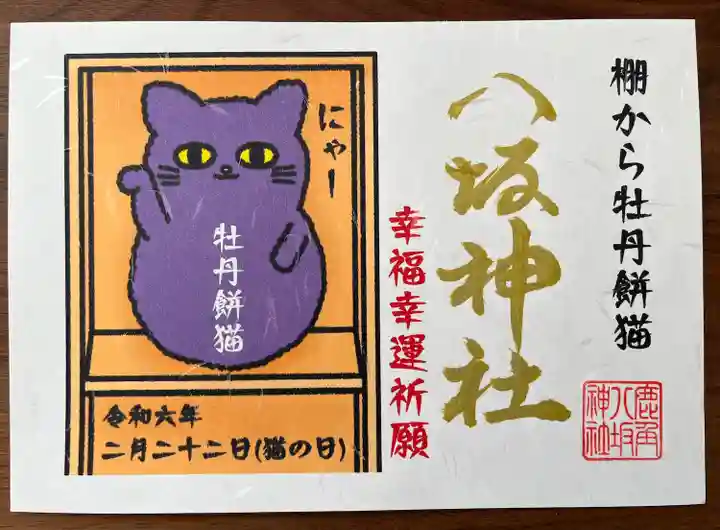 棚から牡丹餅猫
八坂神社
幸福幸運祈願
にゃー
牡丹餅猫
令和六年
二月二十二日(猫の日)
鹿角
八坂
神社